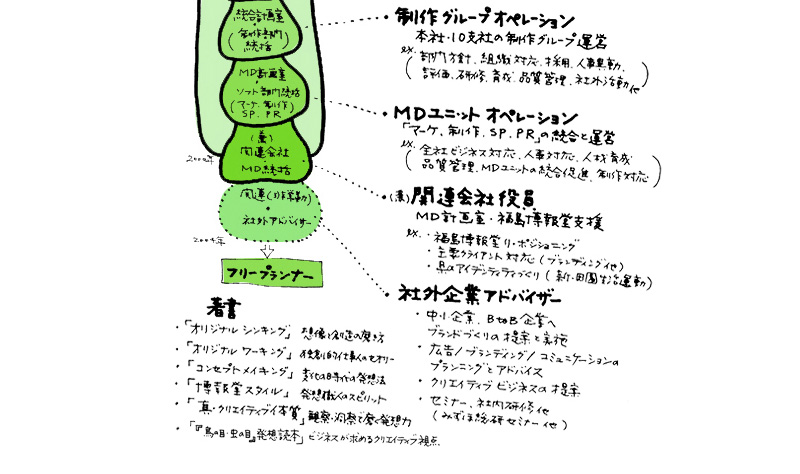 統合計画室
・
制作部門
統括
MD計画室
・
ソフト部門統括
(マーケ、制作)
SP、PR
(兼)
関連会社
MD統括
関連(非常勤)
・
社外アドバイザー
フリープランナー
・制作グループオペレーション
本社・10支社の制作グループ運営
ex. 部門方針、組織対応、採用、人事異動、
評価、研修、育成、品質管理、社外活動 他
・MDユニットオペレーション
「マーケ、制作、SP、PR」の統合と運営
ex. 全社ビジネス対応、人事対応、人材育成
品質管理、MDユニットの統合促進、制作対応
・(兼)関連会社役員
MD計画室・福島博報堂支援
ex. ・福島博報堂リ・ポジショニング
・主要クライアント対応(ブランディング他)
・県のアイデンティティづくり(新・田園生活運動)
・社外企業アドバイザー
・中小企業、BtoB企業へ
ブランドづくりの提案と実施
・広告/ブランディング/コミュニケーションの
プランニングとアドバイス
・クリエイティブビジネスの提案
・セミナー、社内研修他
(みずほ総研セミナー他)
著書
・「オリジナルシンキング」 想像と創造の磨き方
・「オリジナルワーキング」 独創的仕事人のセオリー
・「コンセプトメイキング」 変化の時代の発想法
・「博報堂スタイル」 発想職人のスピリット
・「真・クリエイティブ体質」 観察・洞察で磨く発想力
・「『鳥の目・虫の目』発想読本」 ビジネスが求めるクリエイティブ視点